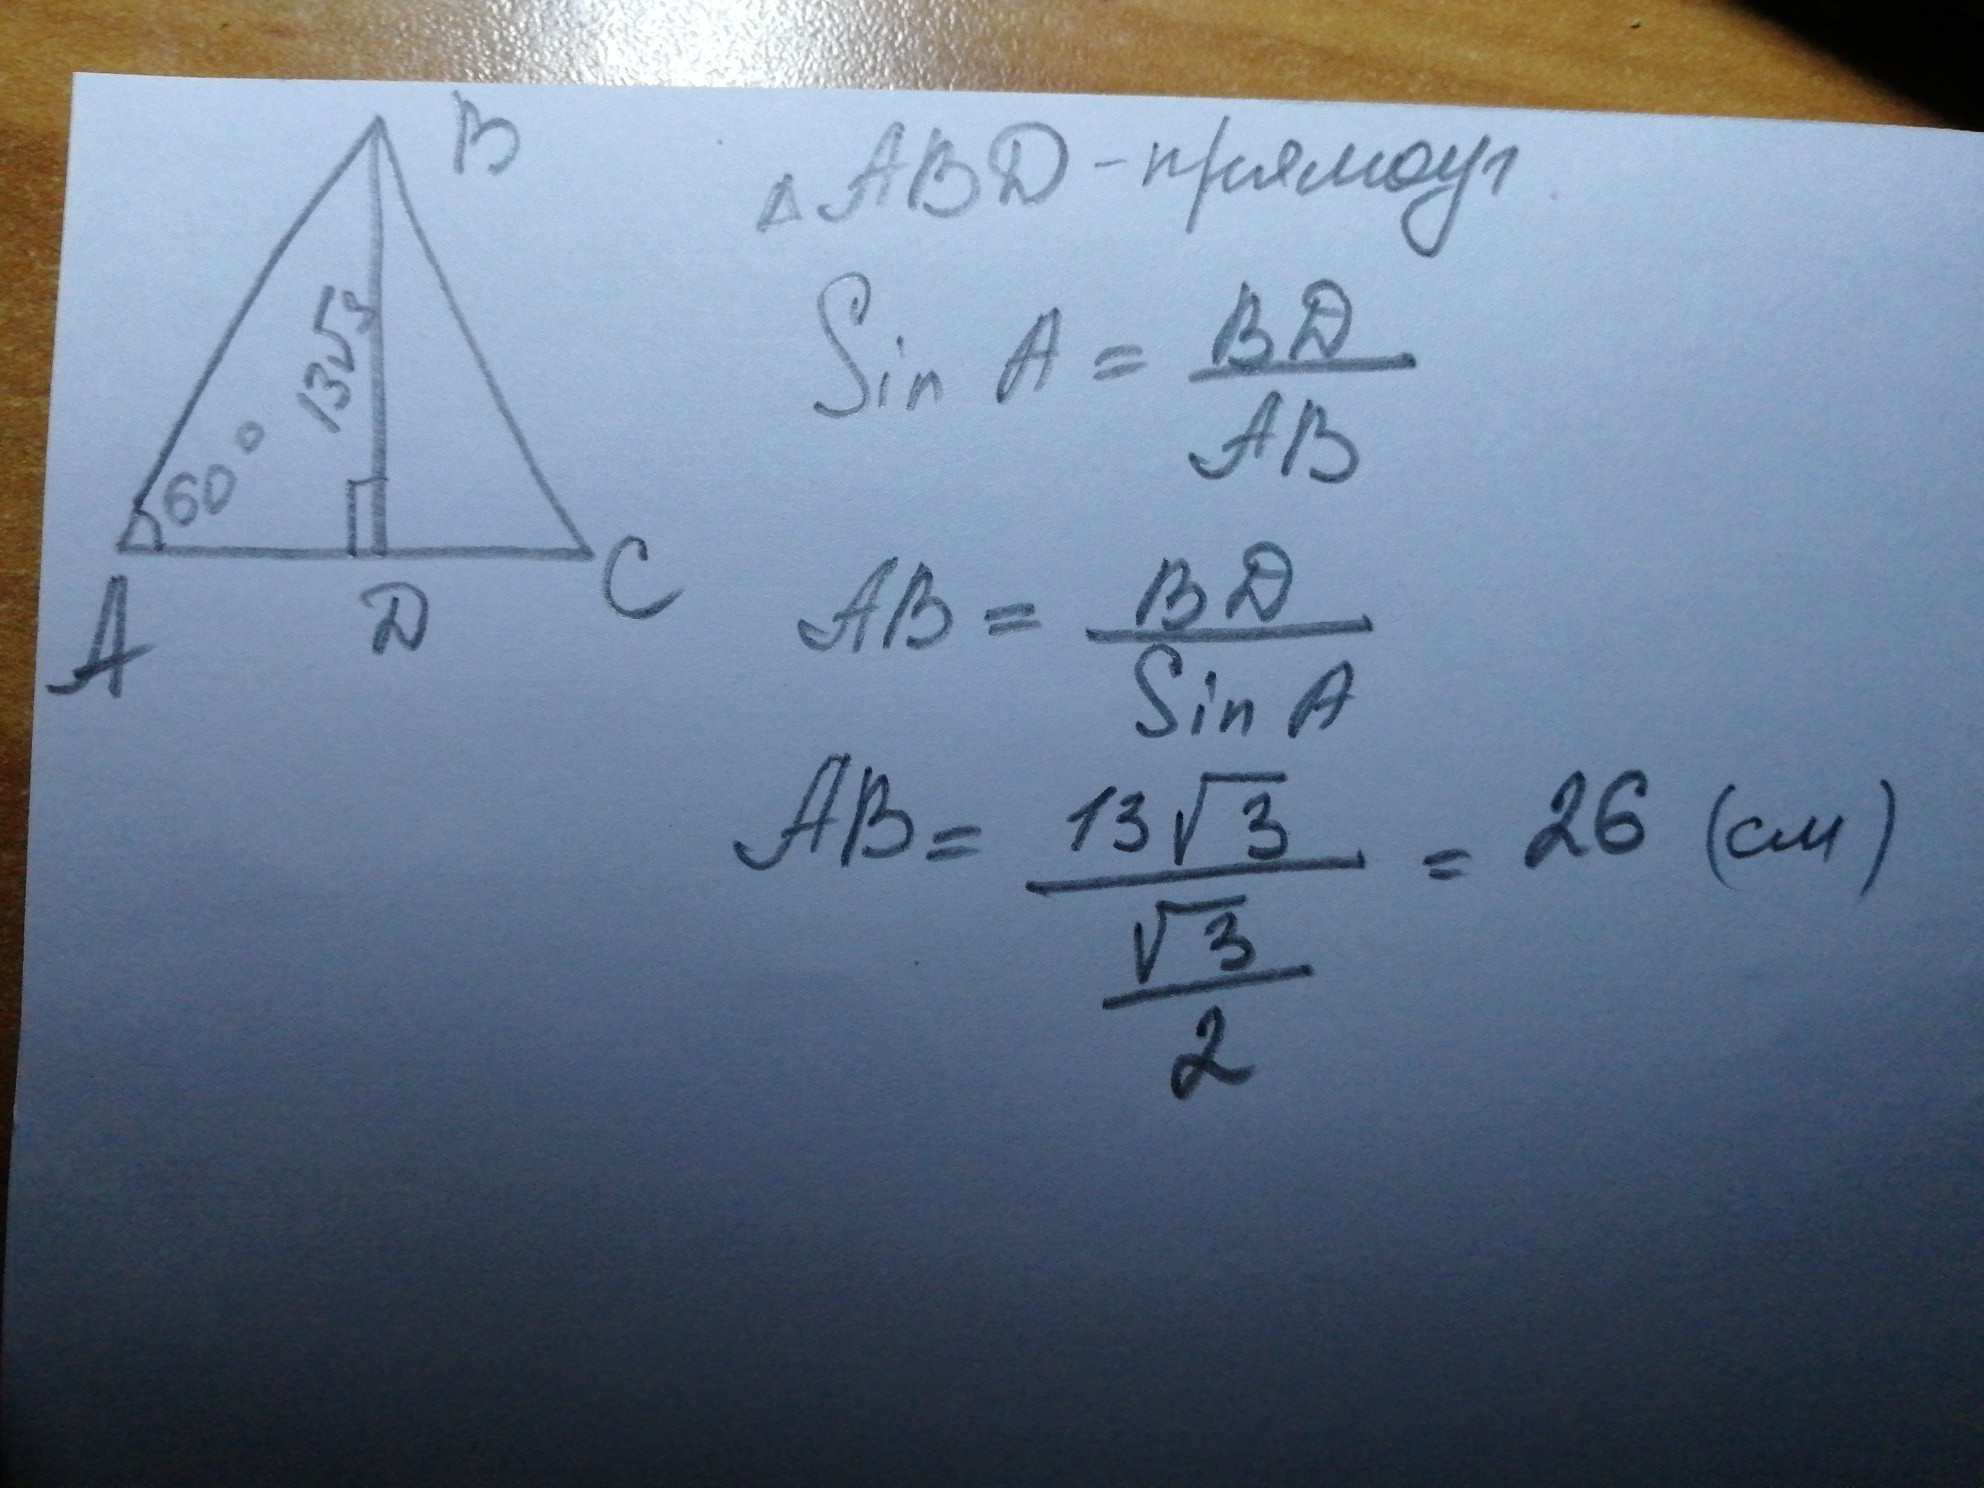 B
13√3
60°
A
D
C
△ABD - прямоуг.
Sin A = BD / AB
AB = BD / Sin A
AB = 13√3 / √3 / 2 = 26 (см)